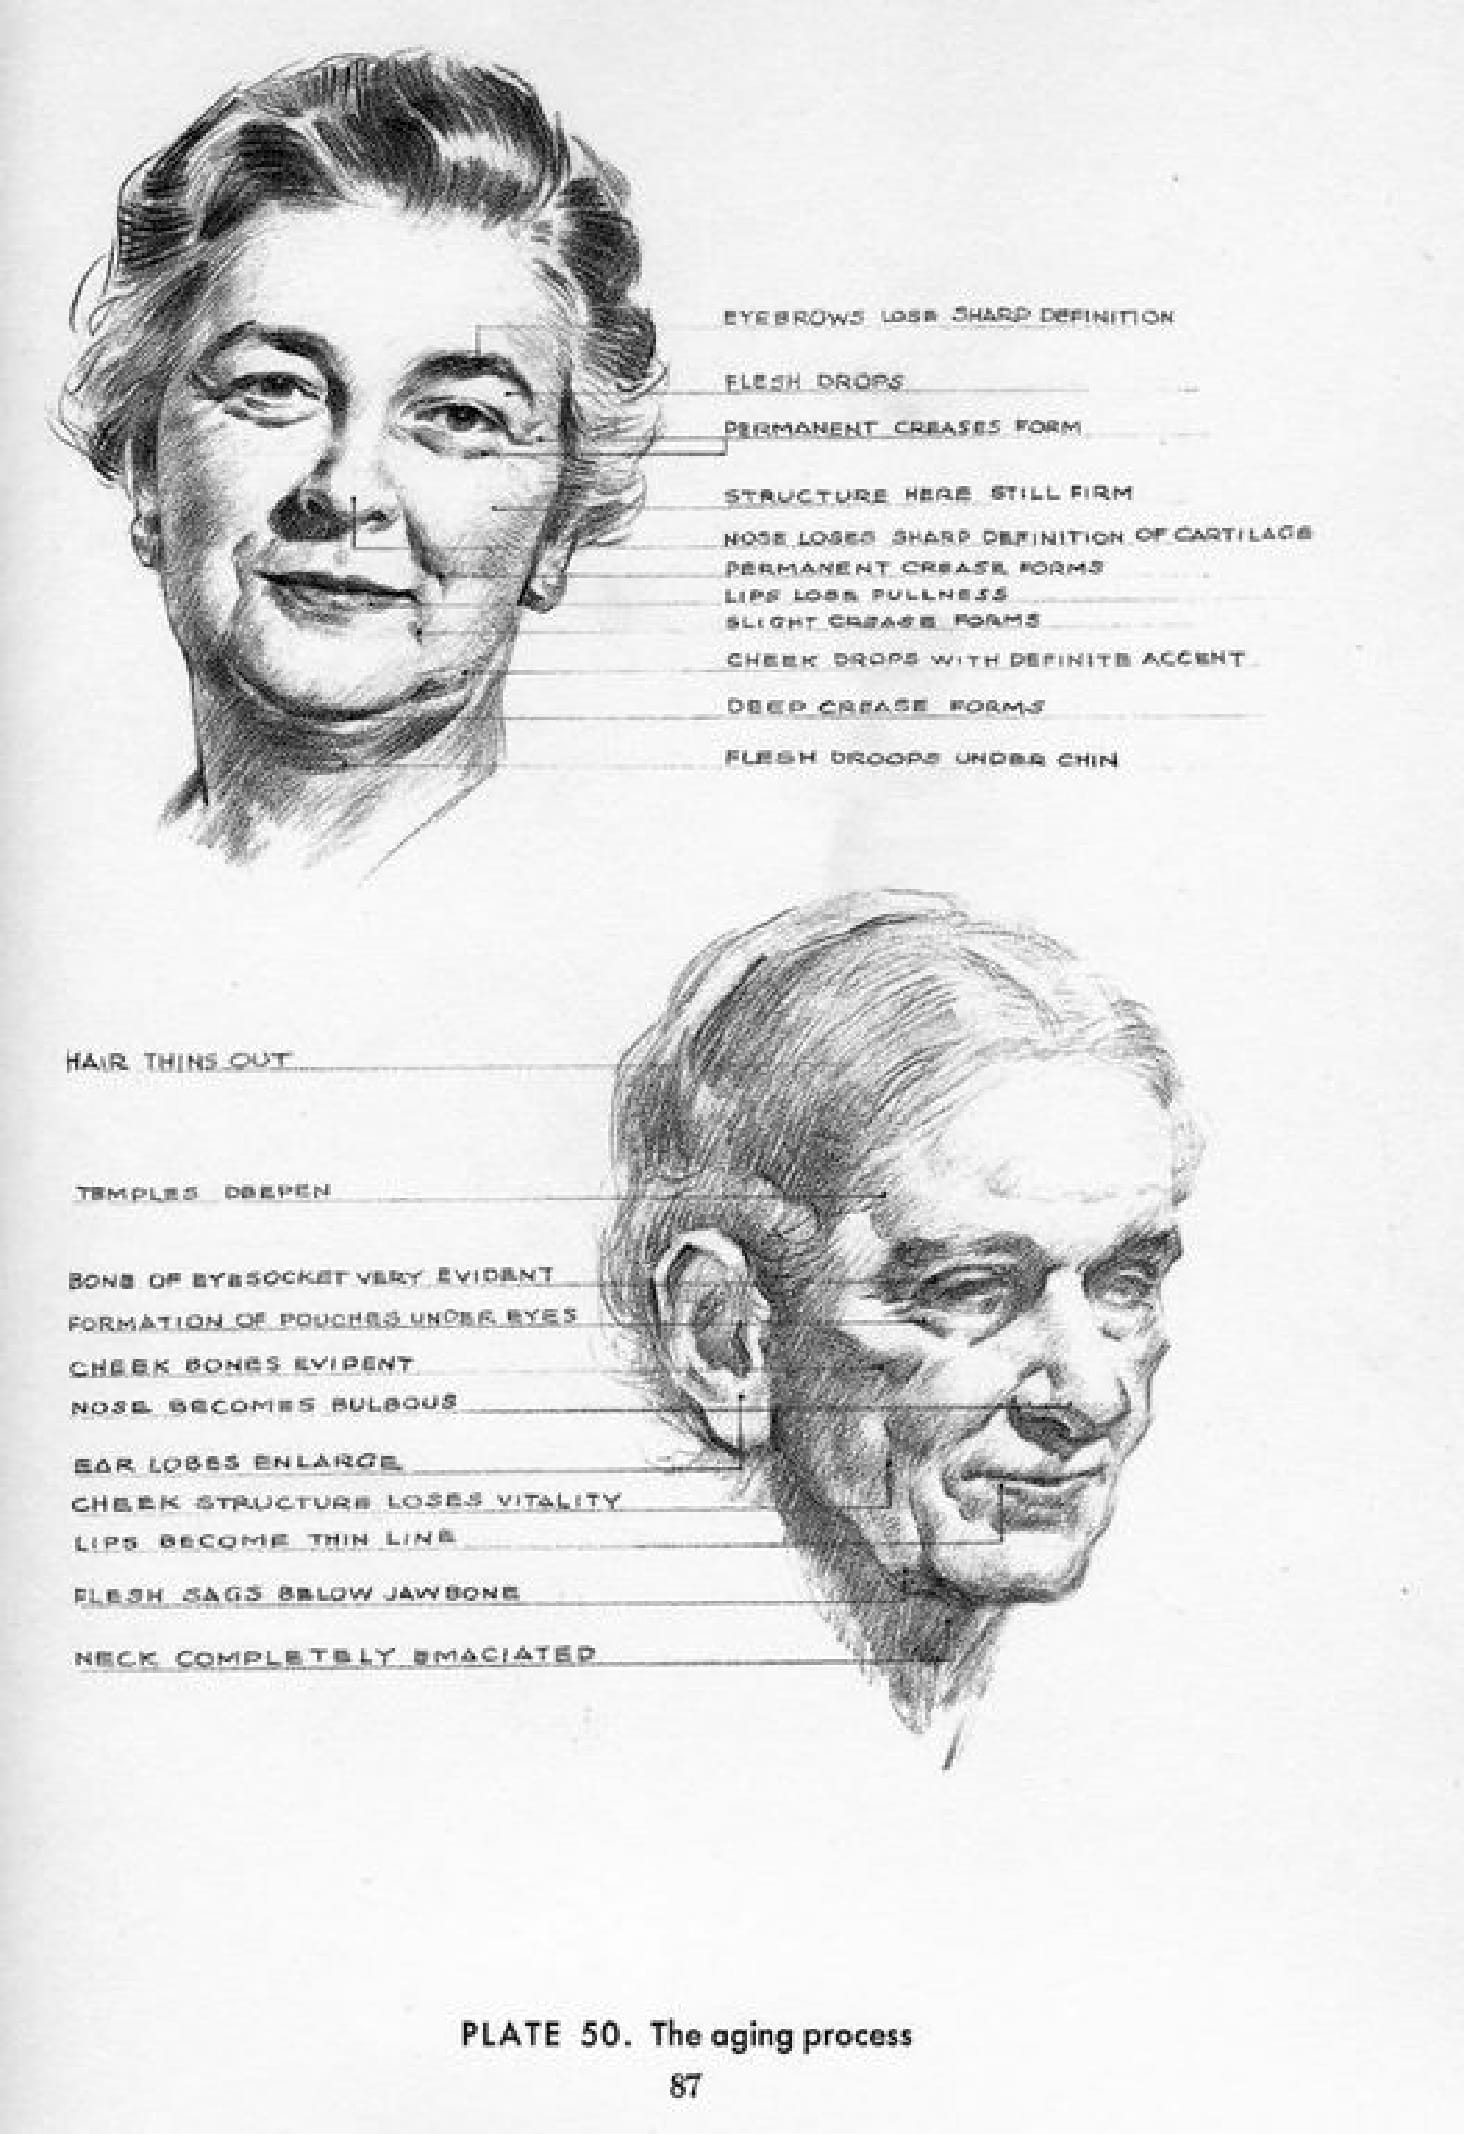 EYEBROWS LOSE SHARP DEFINITION
FLESH DROPS
PERMANENT CREASES FORM
STRUCTURE HERE STILL FIRM
NOSE LOSES SHARP DEFINITION OF CARTILAGE
PERMANENT CREASE FORMS
LIPS LOSE FULLNESS
SLIGHT CREASE FORMS
CHEEK DROPS WITH DEFINITE ACCENT
DEEP CREASE FORMS
FLESH DROOPS UNDER CHIN
HAIR THINS OUT
TEMPLES DEEPEN
BONE OF EYESOCKET VERY EVIDENT
FORMATION OF POUCHES UNDER EYES
CHEEK BONES EVIDENT
NOSE BECOMES BULBOUS
EAR LOBES ENLARGE
CHEEK STRUCTURE LOSES VITALITY
LIPS BECOME THIN LINE
FLESH SAGS BELOW JAWBONE
NECK COMPLETELY EMACIATED
PLATE 50. The aging process
87